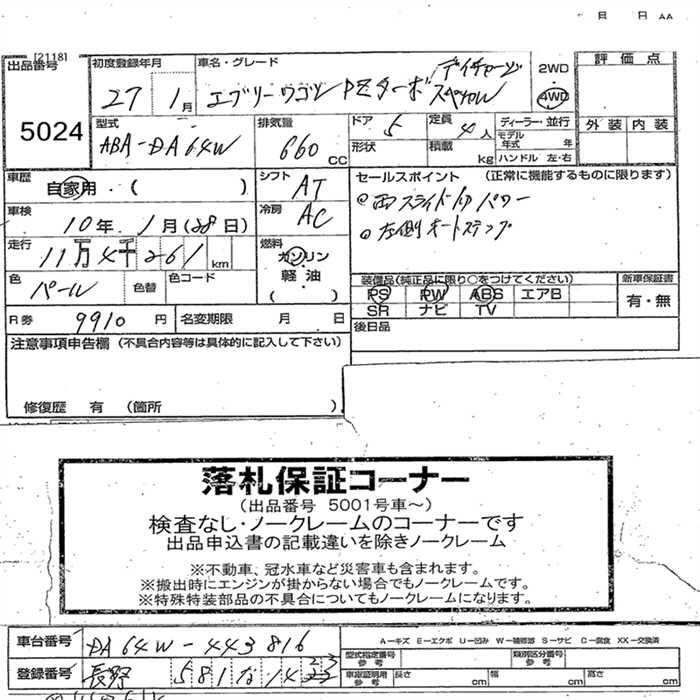 月 日 AA
[2118]
出品番号 5024
初度登録年月 27 1月
車名・グレード エブリーワゴン PZターボ デイチャーム スペシャル
2WD 4WD
評価点
型式 ABA-DA64W
排気量 660 CC
ドア 5
定員 4人
ディーラー・並行
モデル年式 年
形状
積載 kg
ハンドル 左・右
外装 内装
車歴 自家用・( )
シフト AT
セールスポイント (正常に機能するものに限ります)
車検 10年 1月(28日)
冷房 AC
両スライドドア パワー
左側オートステップ
走行 11万4千261km
燃料 ガソリン 軽油 ( )
色 パール
色替
色コード
装備品(純正品に限り○をつけてください)
新車保証書
PS PW ABS エアB
有・無
SR ナビ TV
R券 9910 円
名変期限 月 日
後日品
注意事項申告欄 (不具合内容等は具体的に記入して下さい)
修復歴 有 (箇所 )
落札保証コーナー
(出品番号 5001号車〜)
検査なし・ノークレームのコーナーです
出品申込書の記載違いを除きノークレーム
※不動車、冠水車など災害車も含まれます。
※搬出時にエンジンが掛からない場合でもノークレームです。
※特殊特装部品の不具合についてもノークレームになります。
車台番号 DA64W-443816
A－キズ E－エクボ U－凹み W－補修跡 S－サビ C－腐食 XX－交換済
型式指定番号 参考
類別区分番号 参考
登録番号 長野 581 な 14
車庫証明用 参考 長さ cm 幅 cm 高さ cm